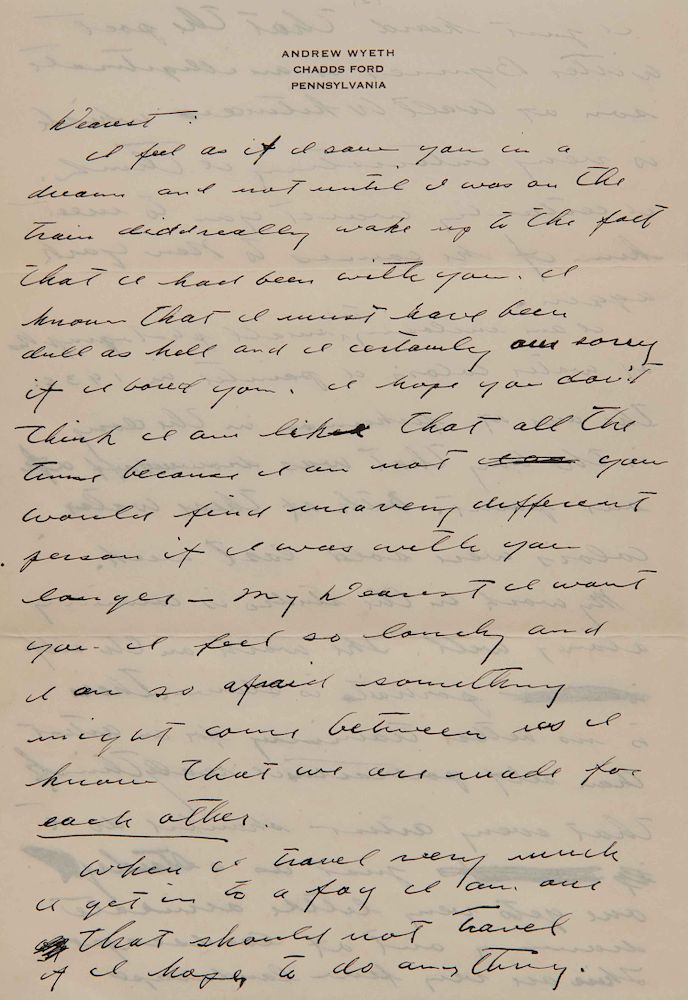 ANDREW WYETH
CHADDS FORD
PENNSYLVANIA
Dearest:
I feel as if I saw you in a
dream and not until I was on the
train did I really wake up to the fact
that I had been with you. I
know that I must have been
dull as hell and I certainly am sorry
if I bored you. I hope you don't
think I am like that all the
time because I am not you
would find me a very different
person if I was with you
longer – My Dearest I want
you. I feel so lonely and
I am so afraid something
might come between us I
know that we are made for
each other.
When I travel very much
I get in to a fog I am one
that should not travel
if I hope to do anything.